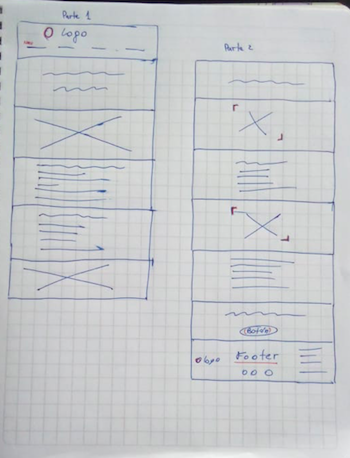 Parte 1
Logo
Parte 2
Botón
Logo Footer